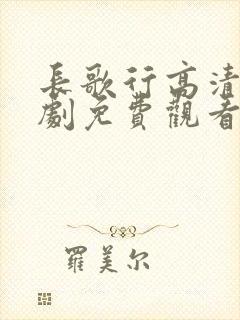 長歌行高清
劇免費觀看
羅美尔